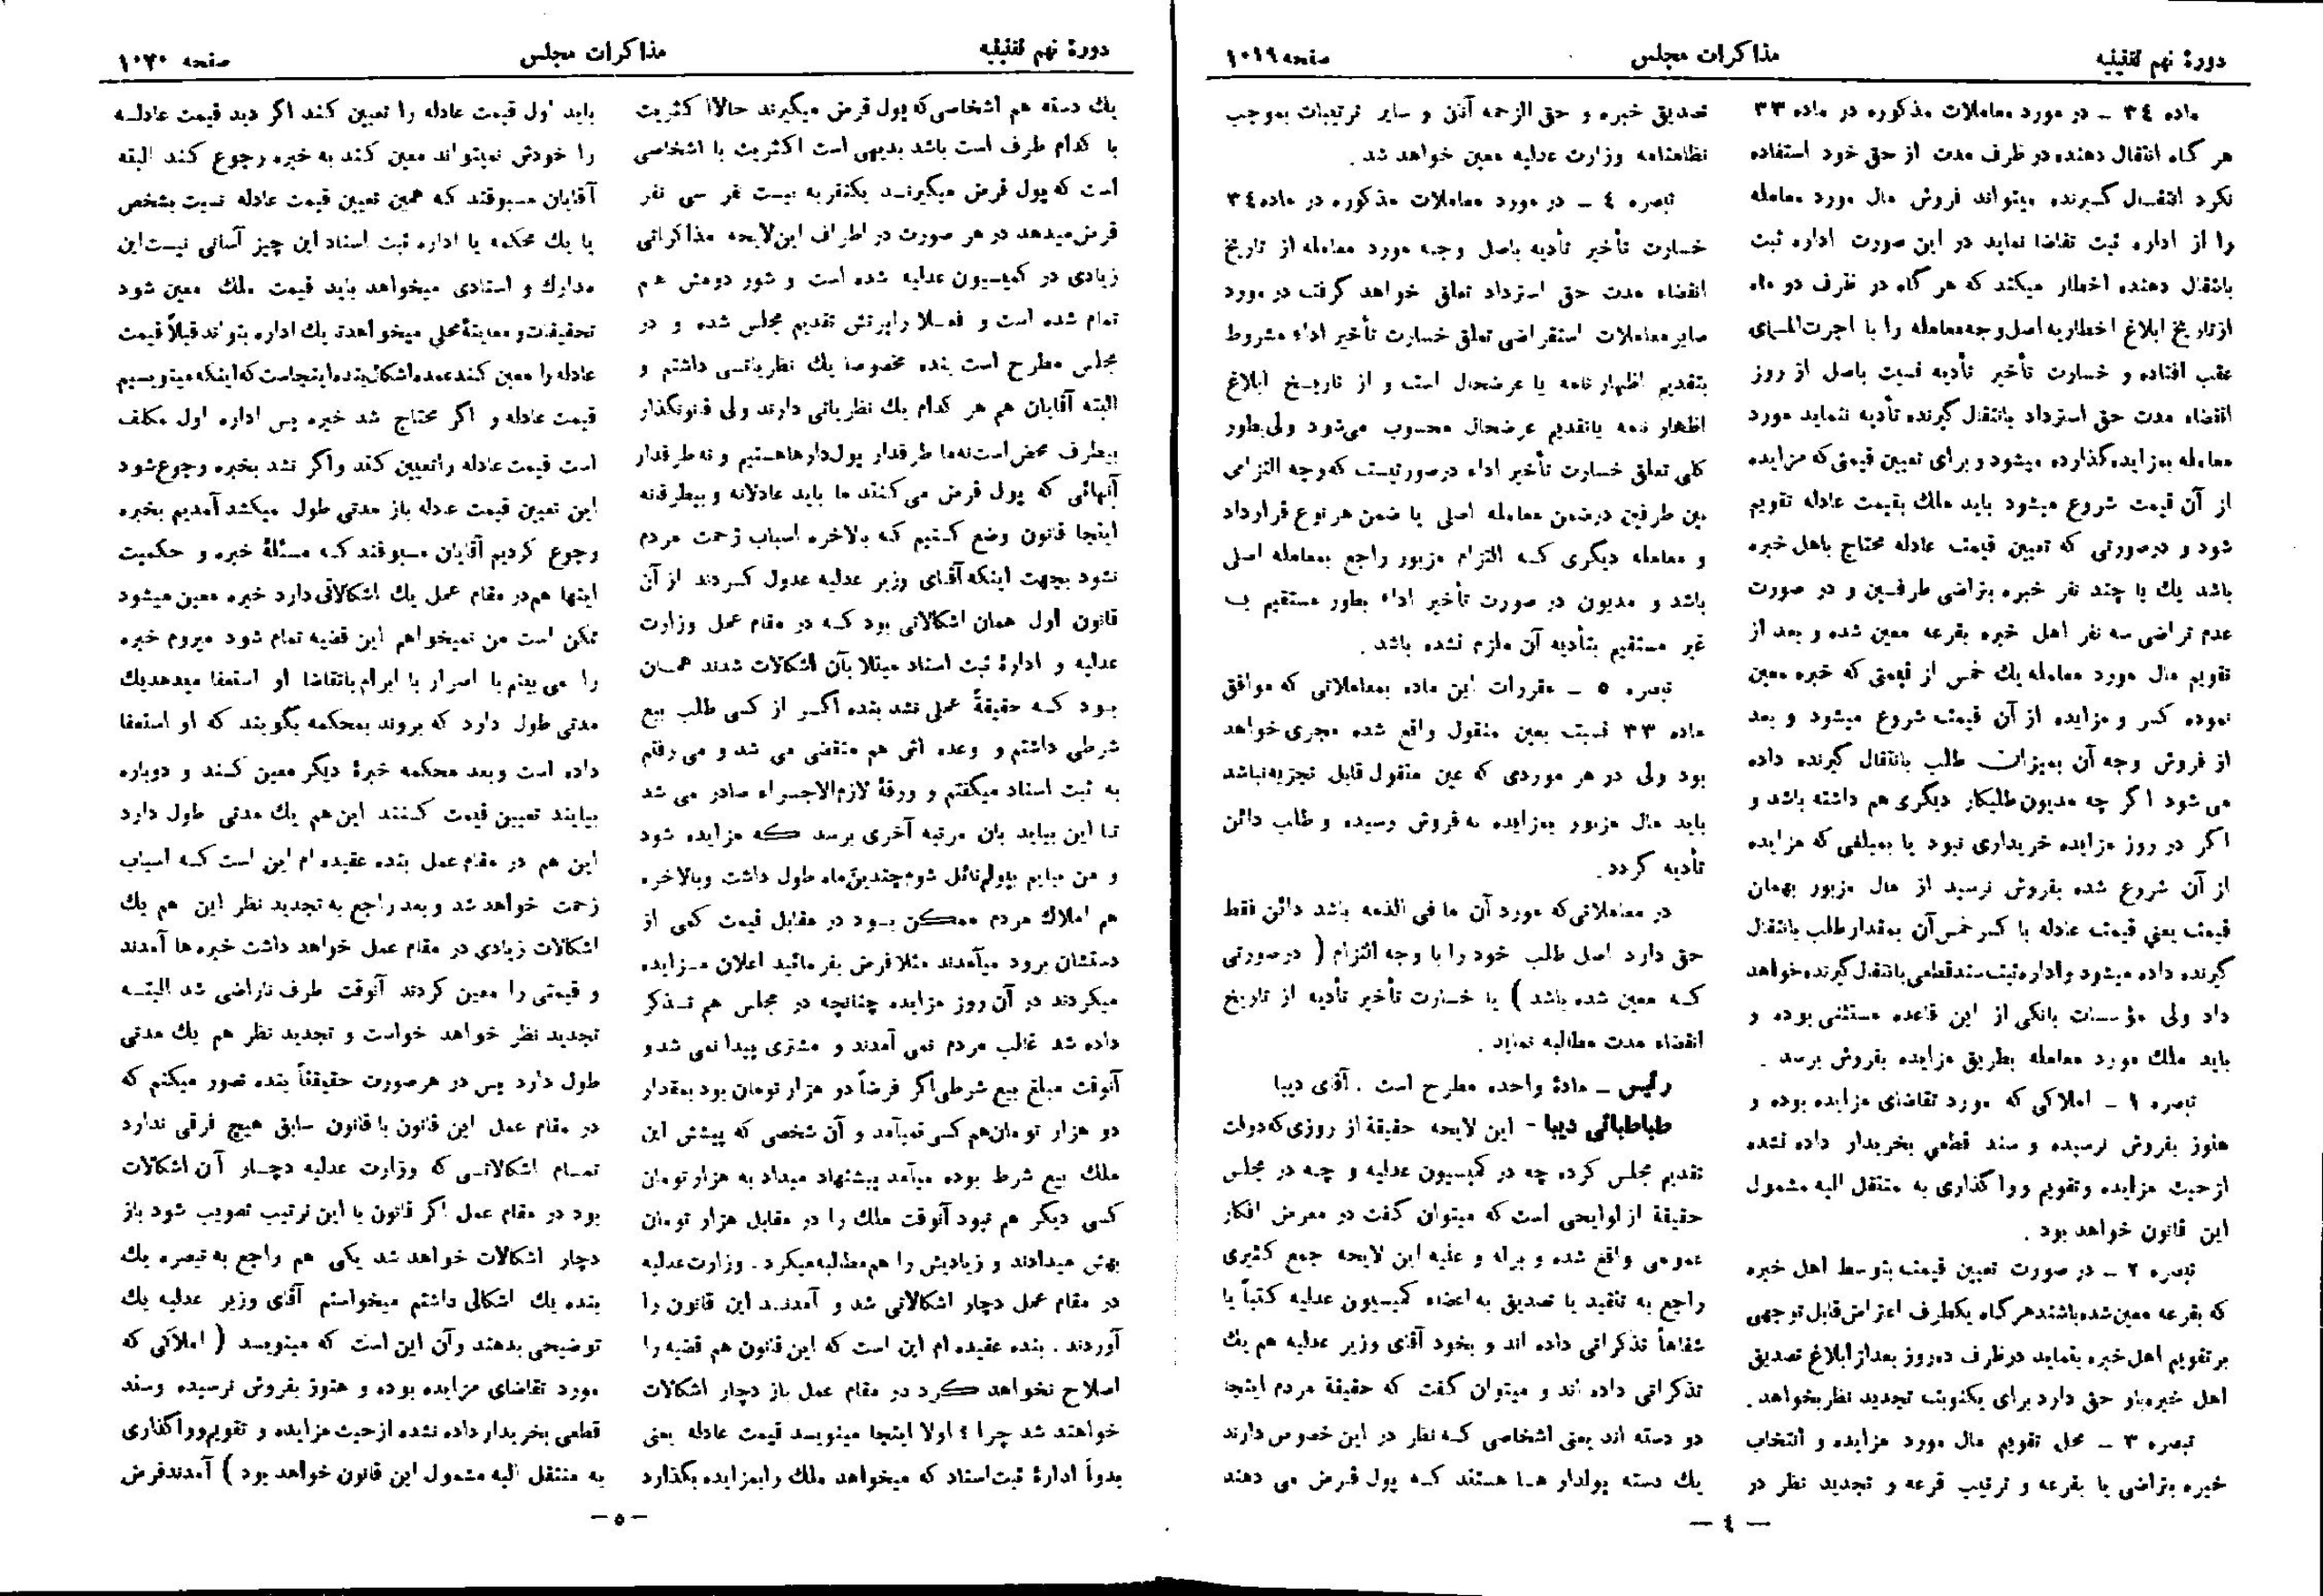 دورهٔ نهم تقنینیه مذاکرات مجلس صفحه ۱۰۱۹
ماده ۳٤ ـ در مورد معاملات مذکوره در ماده ۳۳
هر گاه انتقال دهنده در ظرف مدت از حق خود استفاده
نکرد انتقال گیرنده میتواند فروش مال مورد معامله
را از اداره ثبت تقاضا نماید در این صورت اداره ثبت
بانتقال دهنده اخطار میکند که هر گاه در ظرف دو ماه
ازتاریخ ابلاغ اخطاریه اصل وجه معامله را با اجرت‌المسمای
عقب افتاده و خسارت تأخیر تأدیه نسبت باصل از روز
انقضاء مدت حق استرداد بانتقال گیرنده تأدیه ننماید مورد
معامله بمزایده گذارده میشود و برای تعیین قیمتی که مزایده
از آن قیمت شروع میشود باید ملك بقیمت عادله تقویم
شود و درصورتی که تعیین قیمت عادله محتاج باهل خبره
باشد یك یا چند نفر خبره بتراضی طرفین و در صورت
عدم تراضی سه نفر اهل خبره بقرعه معین شده و بعد از
تقویم مال مورد معامله یك خمس از قیمتی که خبره معین
نموده کسر و مزایده از آن قیمت شروع میشود و بعد
از فروش وجه آن بمیزان طلب بانتقال گیرنده داده
می شود اگر چه مدیون طلبکار دیگری هم داشته باشد و
اگر در روز مزایده خریداری نبود یا بمبلغی که مزایده
از آن شروع شده بفروش نرسید از مال مزبور بهمان
قیمت یعنی قیمت عادله با کسر خمس آن بمقدار طلب بانتقال
گیرنده داده میشود و اداره ثبت سند قطعی بانتقال گیرنده خواهد
داد ولی مؤسسات بانکی از این قاعده مستثنی بوده و
باید ملك مورد معامله بطریق مزایده بفروش برسد .
تبصره ۱ ـ املاکی که مورد تقاضای مزایده بوده و
هنوز بفروش نرسیده و سند قطعی بخریدار داده نشده
ازحیث مزایده و تقویم و واگذاری به منتقل الیه مشمول
این قانون خواهد بود .
تبصره ۲ ـ در صورت تعیین قیمت بتوسط اهل خبره
که بقرعه معین شده باشند هر گاه یکطرف اعتراض قابل توجهی
بر تقویم اهل خبره بنماید درظرف ده روز بعد از ابلاغ تصدیق
اهل خبره باو حق دارد برای یکنوبت تجدید نظر بخواهد .
تبصره ۳ ـ محل تقویم مال مورد مزایده و انتخاب
خبره بتراضی یا بقرعه و ترتیب قرعه و تجدید نظر در
تصدیق خبره و حق الزحمه آنان و سایر ترتیبات بموجب
نظامنامه وزارت عدلیه معین خواهد شد .
تبصره ٤ ـ در مورد معاملات مذکوره در ماده ۳٤
خسارت تأخیر تأدیه باصل وجه مورد معامله از تاریخ
انقضاء مدت حق استرداد تعلق خواهد گرفت در مورد
سایر معاملات استقراضی تعلق خسارت تأخیر اداء مشروط
بتقدیم اظهار نامه یا عرضحال است و از تاریخ ابلاغ
اظهار نامه یا تقدیم عرضحال محسوب می‌شود ولی بطور
کلی تعلق خسارت تأخیر اداء درصورتیست که وجه التزامی
بین طرفین درضمن معامله اصلی یا ضمن هر نوع قرارداد
و معامله دیگری که التزام مزبور راجع بمعامله اصلی
باشد و مدیون در صورت تأخیر اداء بطور مستقیم یا
غیر مستقیم بتأدیه آن ملزم نشده باشد .
تبصره ۵ ـ مقررات این ماده بمعاملاتی که موافق
ماده ۳۳ نسبت بعین منقول واقع شده مجری خواهد
بود ولی در هر موردی که عین منقول قابل تجزیه نباشد
باید مال مزبور بمزایده به فروش رسیده و طلب دائن
تأدیه گردد .
در معاملاتی که مورد آن ما فی الذمه باشد دائن فقط
حق دارد اصل طلب خود را با وجه التزام ( درصورتی
که معین شده باشد ) یا خسارت تأخیر تأدیه از تاریخ
انقضاء مدت مطالبه نماید .
رئیس ـ مادهٔ واحده مطرح است . آقای دیبا
طباطبائی دیبا - این لایحه حقیقة از روزی که دولت
تقدیم مجلس کرده چه در کمیسیون عدلیه و چه در مجلس
حقیقة از لوایحی است که میتوان گفت در معرض افکار
عمومی واقع شده و بر له و علیه این لایحه جمع کثیری
راجع به تنقید یا تصدیق به اعضاء کمیسیون عدلیه کتباً یا
شفاهاً تذکراتی داده اند و بخود آقای وزیر عدلیه هم یك
تذکراتی داده اند و میتوان گفت که حقیقة مردم اینجا
دو دسته اند یعنی اشخاصی که نظر در این خصوص دارند
یك دسته پولدار ها هستند که پول قرض می دهند
— ٤ —
دورهٔ نهم تقنینیه مذاکرات مجلس صفحه ۱۰۲۰
یك دسته هم اشخاصی که پول قرض میگیرند حالا اکثریت
با کدام طرف است باشد بدیهی است اکثریت با اشخاصی
است که پول قرض میگیرند یکنفر به بیست نفر سی نفر
قرض میدهد در هر صورت در اطراف این لایحه مذاکراتی
زیادی در کمیسیون عدلیه شده است و شور دومش هم
تمام شده است و فعلا راپرتش تقدیم مجلس شده و در
مجلس مطرح است بنده مخصوصاً یك نظریاتی داشتم و
البته آقایان هم هر کدام یك نظریاتی دارند ولی قانونگذار
بیطرف محض است نه ما طرفدار پول‌دارها هستیم و نه طرفدار
آنهائی که پول قرض می کنند ما باید عادلانه و بیطرفانه
اینجا قانون وضع کنیم که بالاخره اسباب زحمت مردم
نشود بجهت اینکه آقای وزیر عدلیه عدول کردند از آن
قانون اول همان اشکالاتی بود که در مقام عمل وزارت
عدلیه و ادارهٔ ثبت اسناد مبتلا بآن اشکالات شدند همان
بود که حقیقةً عملی نشد بنده اگر از کسی طلب بیع
شرطی داشتم و وعده اش هم منقضی می شد و می رفتم
به ثبت اسناد میگفتم و ورقهٔ لازم‌الاجراء صادر می شد
تا این بیاید بان مرتبه آخری برسد که مزایده شود
و من بیایم بپولم نائل شوم چندین ماه طول داشت وبالاخره
هم املاك مردم ممکن بود در مقابل قیمت کمی از
دستشان برود میآمدند مثلا فرض بفرمائید اعلان مزایده
میکردند در آن روز مزایده چنانچه در مجلس هم تذکر
داده شد غالب مردم نمی آمدند و مشتری پیدا نمی شد و
آنوقت مبلغ بیع شرطی اگر فرضاً دو هزار تومان بود بمقدار
دو هزار تومان هم کسی نمیآمد و آن شخصی که پیشش این
ملك بیع شرط بوده میآمد پیشنهاد میداد به هزار تومان
کسی دیگر هم نبود آنوقت ملك را در مقابل هزار تومان
بهش میدادند و زیادیش را هم مطالبه میکرد . وزارت عدلیه
در مقام عمل دچار اشکالاتی شد و آمدند این قانون را
آوردند . بنده عقیده ام این است که این قانون هم قضیه را
اصلاح نخواهد کرد در مقام عمل باز دچار اشکالات
خواهند شد چرا ؟ اولا اینجا مینویسد قیمت عادله یعنی
بدواً ادارهٔ ثبت اسناد که میخواهد ملك را بمزایده بگذارد
باید اول قیمت عادله را تعیین کند اگر دید قیمت عادله
را خودش نمیتواند معین کند به خبره رجوع کند البته
آقایان مسبوقند که همین تعیین قیمت عادله نسبت بشخص
یا یك محکمه یا اداره ثبت اسناد این چیز آسانی نیست این
مدارك و اسنادی میخواهد باید قیمت ملك معین شود
تحقیقات و معاینهٔ محلی میخواهد تا یك اداره بتواند قبلاً قیمت
عادله را معین کند عمده اشکال بنده اینجاست که اینکه مینویسیم
قیمت عادله و اگر محتاج شد خبره پس اداره اول مکلف
است قیمت عادله را تعیین کند و اگر نشد بخبره رجوع شود
این تعیین قیمت عادله باز مدتی طول میکشد آمدیم بخبره
رجوع کردیم آقایان مسبوقند که مسئلهٔ خبره و حکمیت
اینها هم در مقام عمل یك اشکالاتی دارد خبره معین میشود
ممکن است من نمیخواهم این قضیه تمام شود میروم خبره
را می بینم با اصرار با ابرام باتقاضا او استعفا میدهد یك
مدتی طول دارد که بروند بمحکمه بگویند که او استعفا
داده است و بعد محکمه خبرهٔ دیگر معین کند و دوباره
بیایند تعیین قیمت کنند این هم یك مدتی طول دارد
این هم در مقام عمل بنده عقیده ام این است که اسباب
زحمت خواهد شد و بعد راجع به تجدید نظر این هم یك
اشکالات زیادی در مقام عمل خواهد داشت خبره ها آمدند
و قیمتی را معین کردند آنوقت طرف ناراضی شد البته
تجدید نظر خواهد خواست و تجدید نظر هم یك مدتی
طول دارد پس در هر صورت حقیقتاً بنده تصور میکنم که
در مقام عمل این قانون با قانون سابق هیچ فرقی ندارد
تمام اشکالاتی که وزارت عدلیه دچار آن اشکالات
بود در مقام عمل اگر قانون با این ترتیب تصویب شود باز
دچار اشکالات خواهد شد یکی هم راجع به تبصره یك
بنده یك اشکالی داشتم میخواستم آقای وزیر عدلیه یك
توضیحی بدهند و آن این است که مینویسد ( املاکی که
مورد تقاضای مزایده بوده و هنوز بفروش نرسیده و سند
قطعی بخریدار داده نشده از حیث مزایده و تقویم و واگذاری
به منتقل الیه مشمول این قانون خواهد بود ) آمدند فرض
— ۵ —